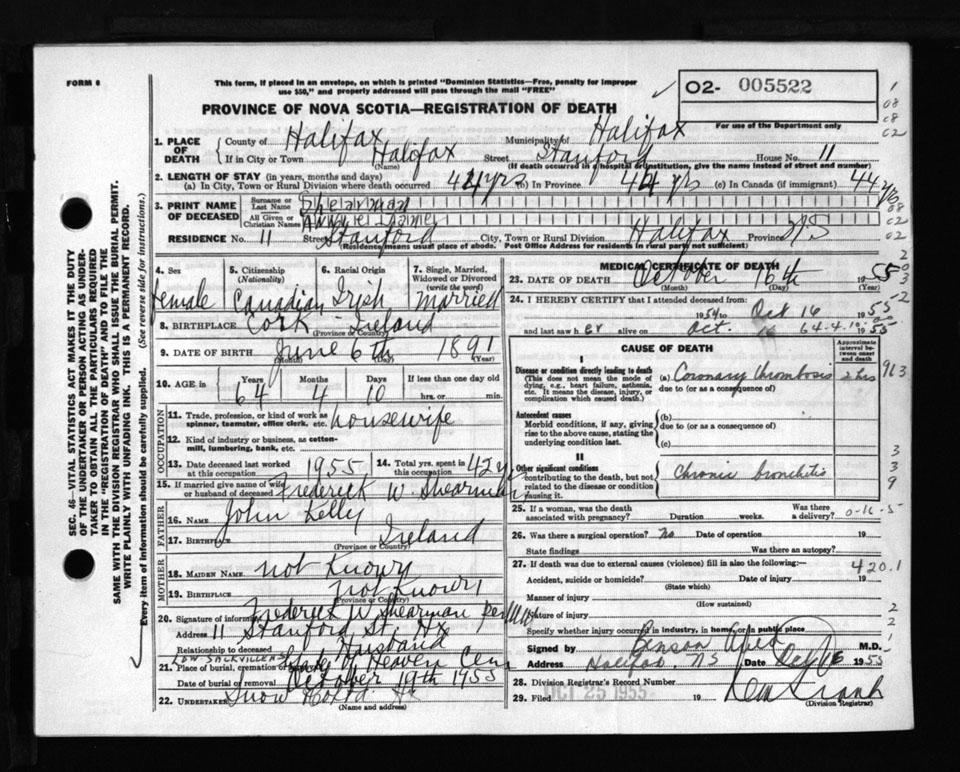 FORM 6
This form, if placed in an envelope, on which is printed "Dominion Statistics—Free, penalty for improper
use $50," and properly addressed will pass through the mail "FREE"
PROVINCE OF NOVA SCOTIA—REGISTRATION OF DEATH
O2- 005522
For use of the Department only
1
08
08
02
1. PLACE OF DEATH
County of Halifax Municipality of Halifax
If in City or Town Halifax (Name) Street Stanford House No. 11
(If death occurred in hospital or institution, give the name instead of street and number)
2. LENGTH OF STAY (in years, months and days)
(a) In City, Town or Rural Division where death occurred 44 yrs (b) In Province 44 yrs (c) In Canada (if immigrant) 44 yrs
3. PRINT NAME OF DECEASED
Surname or Last Name Shearman
All Given or Christian Names Annie Jane
08
02
RESIDENCE No. 11 Street Stanford City, Town or Rural Division Halifax Province N.S
02
(Residences usual place of abode. Post Office Address for residents in rural parts not sufficient)
4. Sex
female
5. Citizenship (Nationality)
Canadian
6. Racial Origin
Irish
7. Single, Married, Widowed or Divorced (write the word)
married
8. BIRTHPLACE Cork Ireland
(Province or Country)
9. DATE OF BIRTH June 6th 1891
(Month) (Day) (Year)
10. AGE in Years Months Days If less than one day old
64 4 10 hrs. or min.
OCCUPATION
11. Trade, profession, or kind of work as
spinner, teamster, office clerk, etc. housewife
12. Kind of industry or business, as cotton-
mill, lumbering, bank, etc.
13. Date deceased last worked
at this occupation 1955
14. Total yrs. spent in
this occupation 42 yrs
15. If married give name of wife
or husband of deceased Frederick W. Shearman
FATHER
16. NAME John Kelly
17. BIRTHPLACE Ireland
(Province or Country)
MOTHER
18. MAIDEN NAME not Known
19. BIRTHPLACE not Known
(Province or Country)
20. Signature of informant Frederick W Shearman per
Address 11 Stanford St. Hx
Relationship to deceased Husband
LOW SACKVILLE
21. Place of burial, cremation Lady of Heaven Cem
Date of burial or removal October 19th 1955
22. UNDERTAKER Snow Hx
(Name and address)
MEDICAL CERTIFICATE OF DEATH
23. DATE OF DEATH October 16th 1955
(Month) (Day) (Year)
24. I HEREBY CERTIFY that I attended deceased from
1954 to Oct 16 1955
and last saw her alive on Oct. 16 1955
64-4-10
CAUSE OF DEATH
Approximate interval between onset and death
I
Disease or condition directly leading to death
(This does not mean the mode of
dying, e.g., heart failure, asthenia,
etc. It means the disease, injury, or
complication which caused death.)
(a) Coronary thrombosis 2 hrs
due to (or as a consequence of)
963
Antecedent causes
Morbid conditions, if any, giving
rise to the above cause, stating the
underlying condition last.
(b)
due to (or as a consequence of)
(c)
II
Other significant conditions
contributing to the death, but not
related to the disease or condition
causing it.
Chronic bronchitis
3
3
9
25. If a woman, was the death
associated with pregnancy? Duration weeks. Was there a delivery?
0-16-5
26. Was there a surgical operation? No Date of operation 19
State findings Was there an autopsy?
27. If death was due to external causes (violence) fill in also the following:—
420.1
Accident, suicide or homicide? Date of injury 19
(State which)
Manner of injury
(How sustained)
Nature of injury
Specify whether injury occurred in industry, in home, or in public place
2
2
1
Signed by Benson M.D.
Address Halifax. NS Date Oct 16 1955
28. Division Registrar's Record Number
29. Filed OCT 25 1955 19
(Division Registrar)
SEC. 46—VITAL STATISTICS ACT MAKES IT THE DUTY
OF THE UNDERTAKER OR PERSON ACTING AS UNDER-
TAKER TO OBTAIN ALL THE PARTICULARS REQUIRED
IN THE "REGISTRATION OF DEATH" AND TO FILE THE
SAME WITH THE DIVISION REGISTRAR WHO SHALL ISSUE THE BURIAL PERMIT.
WRITE PLAINLY WITH UNFADING INK. THIS IS A PERMANENT RECORD.
Every item of information should be carefully supplied. (See reverse side for instructions.)